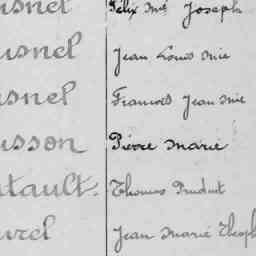 usnel Félix Me Joseph
usnel Jean Louis Mie
usnel François Jean Mie
usson Pierre Marie
utault. Thomas Prudent
urel Jean Marie Théoph